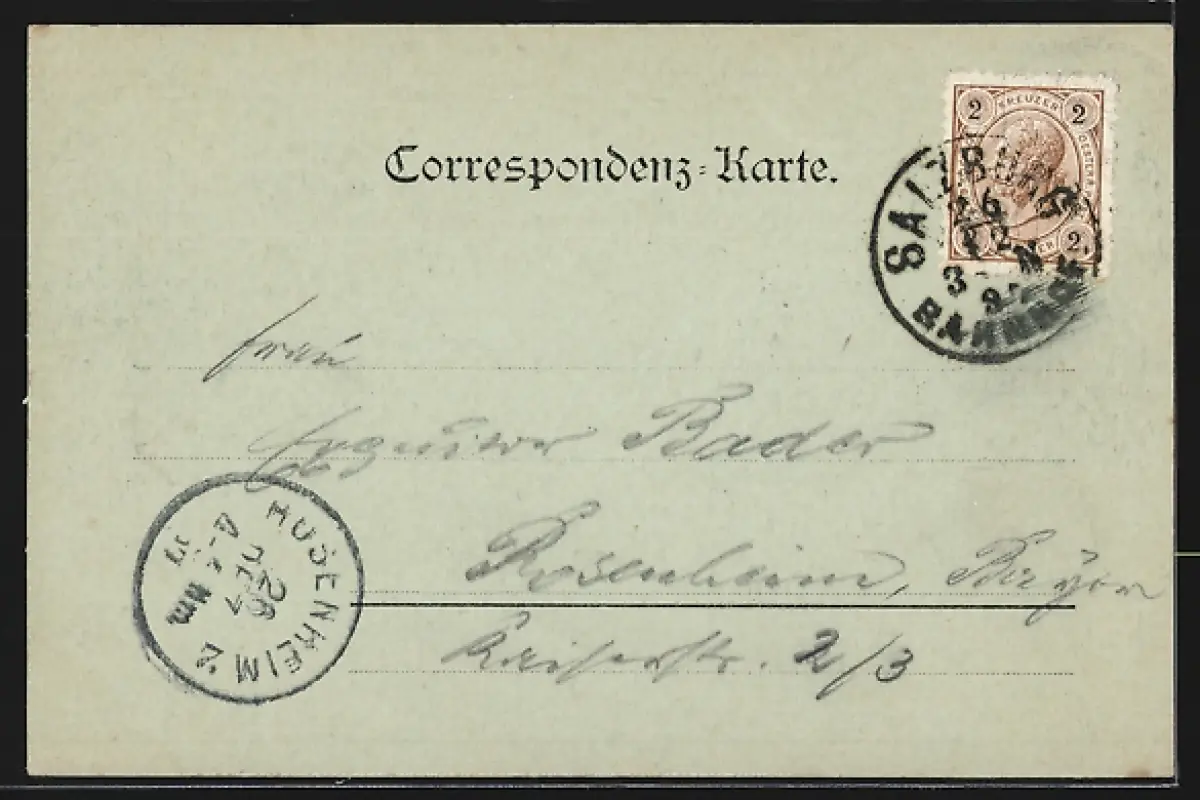 Correspondenz-Karte.
2 KREUZER 2
2
SALZBURG
26
12
3 - N
BAHNHOF
Frau
Bader
Rosenheim, Bayern
Kaiserstr. 2/3
ROSENHEIM
26
DEZ
Nm